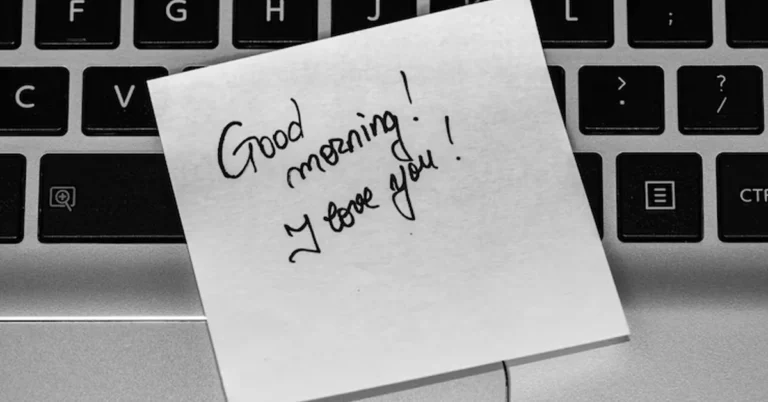 F G H J L ;
C V > . ? /
CTR
Good
morning!
I love you!